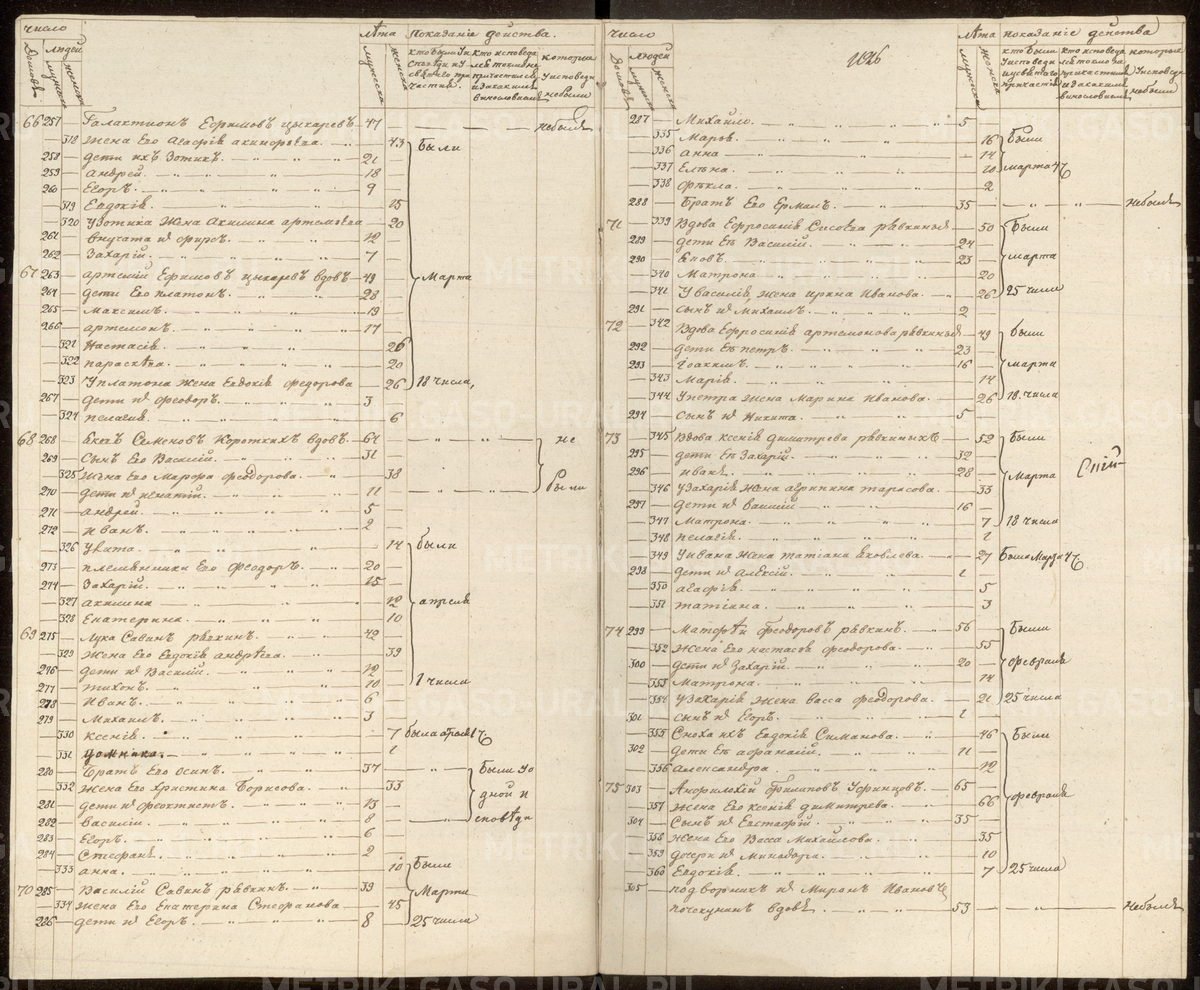 число
лѣта
показаніе действа.
Домовъ
людей
мужеска
женска
мужеска
женска
которые
Уисповеди
небыли
66 257 Галактионъ Ефимовъ цыкаревъ 47 небылъ
318 Жена Его Агафія 43 были
258 дети ихъ Зотикъ. 21
259 андрей. 18
260 Егоръ. 9
319 Евдокія 15
320 Узотика Жена Акилина артемьева 20
261 внучата ихъ фирсъ. 12
262 Захарій. 7
67 263 артемій Ефимовъ цыкаревъ вдовъ 49 Марта
264 дети Его платонъ. 28
265 Максимъ. 19
266 артемонъ. 17
321 Настасія 26
322 параскева. 20
323 Уплатона жена Евдокія федорова 26 18 числа,
267 дети их феодоръ. 3
324 пелагія 6
68 268 Семеновъ Короткихъ вдовъ. 64 не
269 Сынъ Его Василій. 31
325 Жена Его Марфа феодорова. 38 были
270 дети их игнатій. 11
271 андрей. 5
272 иванъ. 2
326 14 были
273 племянники Его феодоръ. 20
274 Захарій. 15
327 акилина 12 апреля
328 Екатерина. 10
69 275 Лука Савинъ рявкинъ. 42
329 Жена Его Евдокія андреева. 39
276 дети их Василій. 12
277 тихонъ. 10 1 числа
278 Иванъ. 6
279 Михаилъ. 3
330 ксенія. 7 была апреля 17
331 домника. 1
280 братъ Его осипъ. 37 Были Уо
332 жена Его Христина Борисова. 33 дной и
281 дети их феоктистъ. 13
282 Василій. 8 споведи
283 Егоръ. 6
284 Стефанъ. 2
333 анна. 10 Были
70 285 Василій Савинъ рявкинъ. 39 Марта
334 Жена Его Екатерина Стефанова 45
286 дети их Егоръ. 8 25 числа
число
лѣта
показаніе действа
1826
Домовъ
людей
мужеска
женска
мужеска
женска
которые
Уисповеди
небыли
287 Михайло. 5
335 Марфа. 16 Были
336 анна 14
337 Елена. 10 марта 17
338 фекла. 2
288 братъ Его Ермилъ. 35 небылъ
71 339 вдова Ефросинія Сисоева рявкиныхъ 50 Были
289 дети Ея Василій. 24
290 23 марта
340 Матрона 20
341 Увасилія, жена ирина Иванова. 26 25 числа
291 сынъ их Михаилъ. 2
72 342 вдова Ефросинія артемонова рявкиныхъ 49 были
292 дети Ея петръ. 23
293 Іоакимъ. 16 марта
343 Марія. 14
344 Упетра жена Марина Иванова. 26 18 числа
294 сынъ их Никита. 5
73 345 вдова ксенія димитрева рявкиныхъ 52 Были
295 дети Ея Захарій. 32
296 иванъ. 28 Марта
346 Узахарія жена агрипина тарасова. 33
297 дети их Василій 16
347 Матрона. 7 18 числа
348 пелагія. 1
349 Уивана жена татіана Яковлева. 27 Была Марта 17
298 дети их алексій. 1
350 агафія 5
351 татіана. 3
74 299 Матфей феодоровъ рявкинъ. 56 Были
352 жена Его настасія феодорова. 55
300 дети их Захарій. 20 февраля
353 Матрона. 14
354 Узахарія жена васса феодорова. 21 25 числа
301 сынъ их Егоръ. 1
355 Сноха ихъ Евдокія Симанова. 46 Были
302 дети Ея афанасій. 11
356 Александра. 12
75 303 Амфилохій Филиповъ Уфинцовъ. 65 февраля
357 Жена Его ксенія димитрева. 66
304 Сынъ их Евстафій. 35
358 жена Его Васса Михайлова. 35
359 дочери их Минодора. 10
360 Евдокія. 7 25 числа
305 подворникъ их Миронъ Ивановъ
почекунинъ вдовъ. 53 небылъ